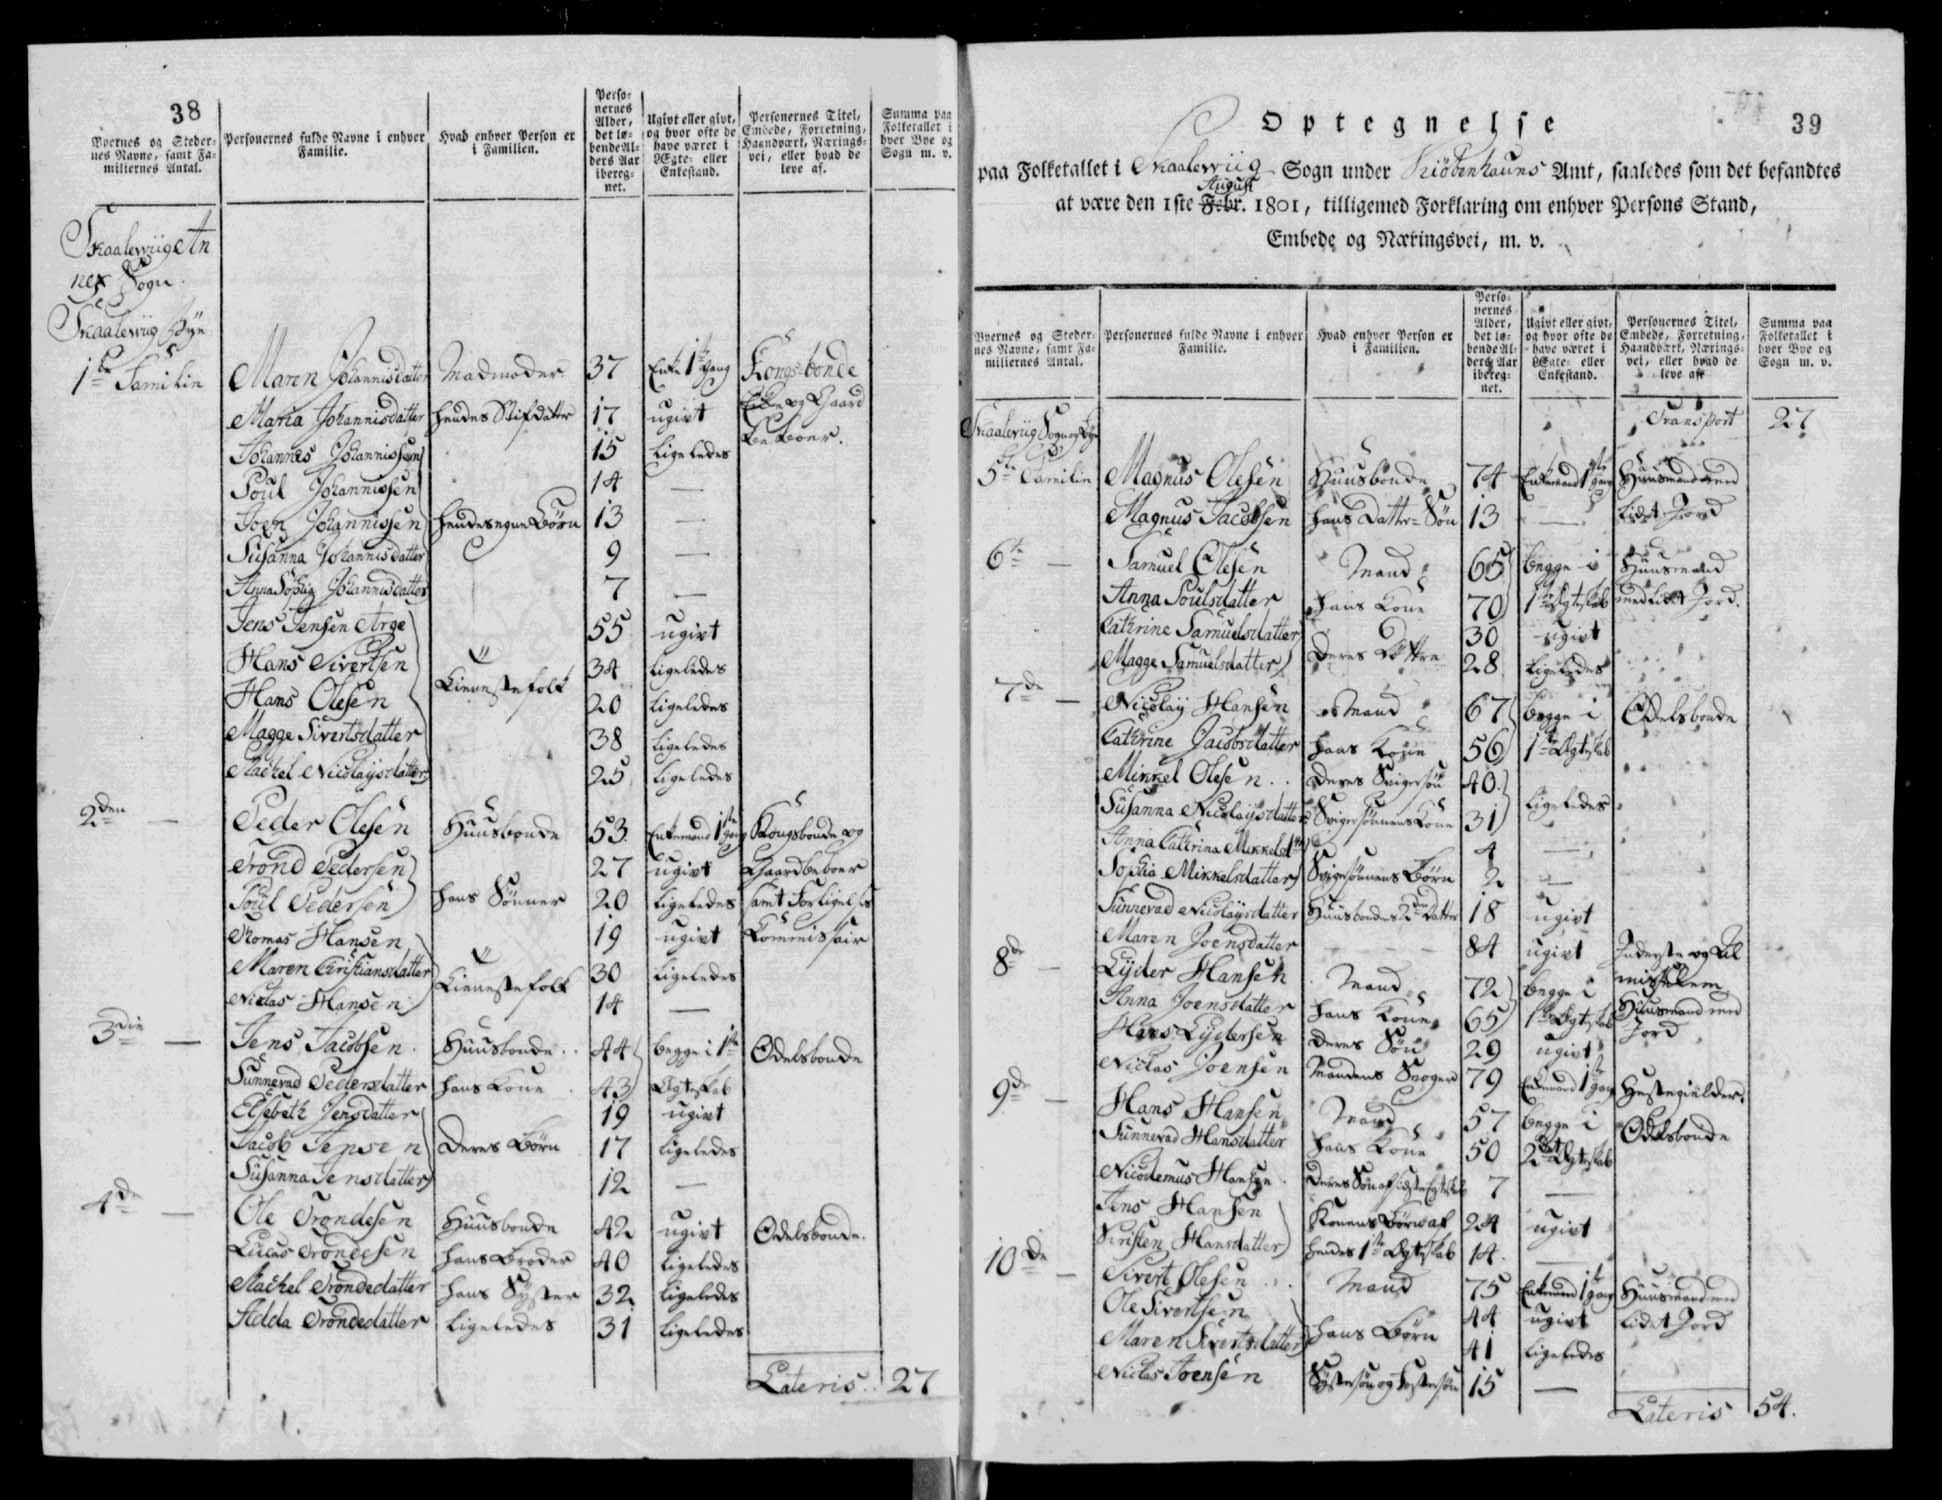 38
Byernes og Steder-
nes Navne, samt Fa-
miliernes Antal.
Personernes fulde Navne i enhver
Familie.
Hvad enhver Person er
i Familien.
Perso-
nernes
Alder,
det lø-
bende Al-
ders Aar
ibereg-
net.
Ugivt eller givt,
og hvor ofte de
have været i
Ægte- eller
Enkestand.
Personernes Titel,
Embede, Forretning,
Haandværk, Nærings-
vei, eller hvad de
leve af.
Summa paa
Folketallet i
hver Bye og
Sogn m. v.
Skaalewiig An
nex Sogn.
Skaalewiig Bye
1te Familie Maren Johannisdatter Madmoder 37 Enke 1te gang Kongsbonde
Maria Johannisdatter hendes Stifdatter 17 ugivt Enke og Gaard
Johannes Johannissen 15 ligeledes beboer.
Poul Johannissen 14 —
Joen Johannissen hendes egne Børn 13 —
Susanna Johannisdatter 9 —
Anna Sophia Johannisdatter 7 —
Jens Jensen Arge 55 ugivt
Hans Sivertsen 34 ligeledes
Tienestefolk
Hans Olesen 20 ligeledes
Magge Sivertsdatter 38 ligeledes
Rachel Nicolaysdatter 25 ligeledes
2den — Peder Olesen Huusbonde 53 Enkemand 1te gang Kongsbonde og
Trond Pedersen 27 ugivt Gaardbeboer
Poul Pedersen hans Sønner 20 ligeledes samt Forligelses
Thomas Hansen 19 ugivt Kommissair
Maren Christiansdatter Tienestefolk 30 ligeledes
Niclas Hansen 14 —
3die — Jens Jacobsen Huusbonde 44 begge i 1te Odelsbonde
Sunnevad Pedersdatter hans Kone 43 Ægteskab
Elsebeth Jensdatter 19 ugivt
Jacob Jensen Deres Børn 17 ligeledes
Susanna Jensdatter 12 —
4de — Ole Trondesen Huusbonde 42 ugivt Odelsbonde.
Lucas Trondesen hans Broder 40 ligeledes
Rachel Trondedatter hans Syster 32 ligeledes
Adda Trondedatter ligeledes 31 ligeledes
Lateris.. 27
39
Optegnelse
paa Folketallet i Skaalewiig Sogn under Kiøbenhauns Amt, saaledes som det befandtes
August
at være den 1ste Febr. 1801, tilligemed Forklaring om enhver Persons Stand,
Embede og Næringsvei, m. v.
Byernes og Steder-
nes Navne, samt Fa-
miliernes Antal.
Personernes fulde Navne i enhver
Familie.
Hvad enhver Person er
i Familien.
Perso-
nernes
Alder,
det lø-
bende Al-
ders Aar
ibereg-
net.
Ugivt eller givt,
og hvor ofte de
have været i
Ægte- eller
Enkestand.
Personernes Titel,
Embede, Forretning,
Haandværk, Nærings-
vei, eller hvad de
leve af.
Summa paa
Folketallet i
hver Bye og
Sogn m. v.
Transport 27
Skaalewiig Sogn og Bye
5te Familie Magnus Olesen Huusbonde 74 Enkemand 1te gang Huusmand med
Magnus Jacobsen hans Datter-Søn 13 — lidet Jord
6te — Samuel Olesen Mand 65 begge i Huusmand
Anna Poulsdatter hans Kone 70 1te Ægteskab med lidet Jord.
Cathrine Samuelsdatter 30 ugivt
Deres Døttre
Magge Samuelsdatter 28 ligeledes
7de — Nicolay Hansen Mand 67 begge i Odelsbonde
Cathrine Jacobsdatter hans Kone 56 1te Ægteskab
Mikkel Olesen Deres Svigersøn 40
Susanna Nicolaysdatter Svigersønnens Kone 31 ligeledes
Anna Cathrina Mikkelsdtr 4 —
Sophia Mikkelsdatter Svigersønnens Børn 2 —
Sunnevad Nicolaysdatter Huusbondes 2den Datter 18 ugivt
Maren Joensdatter — 84 ugivt Inderste og Al
misselem
8de — Lyder Hansen Mand 72 begge i Huusmand med
Anna Joensdatter hans Kone 65 1te Ægteskab Jord
Hans Lydersen Deres Søn 29 ugivt
Niclas Joensen Mandens Svoger 79 Enkemand 1te gang
9de — Hans Hansen Mand 57 begge i Odelsbonde
Sunnevad Hansdatter hans Kone 50 2det Ægteskab
Nicodemus Hansen Deres Søn af sidste Ægteskab 7 —
Jens Hansen Konens Børn af 24 ugivt
Kirsten Hansdatter hendes 1te Ægteskab 14 —
10de — Sivert Olesen Mand 75 Enkemand 1te gang Huusmand med
Ole Sivertsen 44 ugivt lidet Jord
hans Børn
Maren Sivertsdatter 41 ligeledes
Niclas Joensen Systersøn og Fostersøn 15 —
Lateris 54.